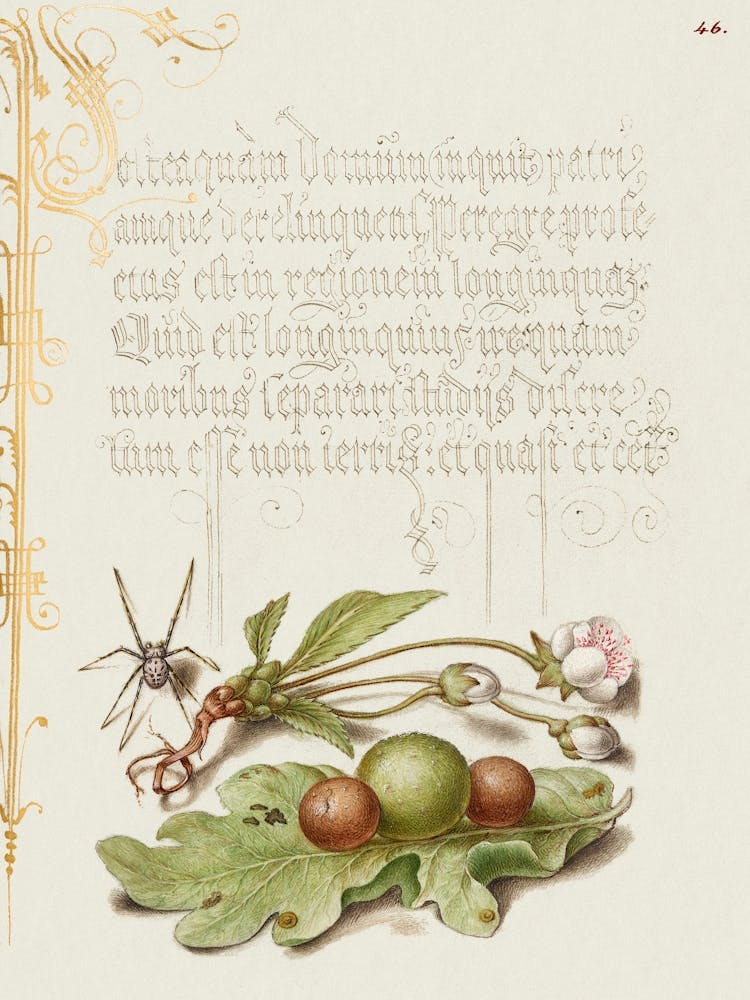 46.
et ites quàm Domum (inquit) patri,
amque derelinquens, Peregre profe-
ctus est in regionem longinquaz.
Quid est longinquius, ure quam
moribus separari, studijs discre,
tum esse non terris: et quasi et cet